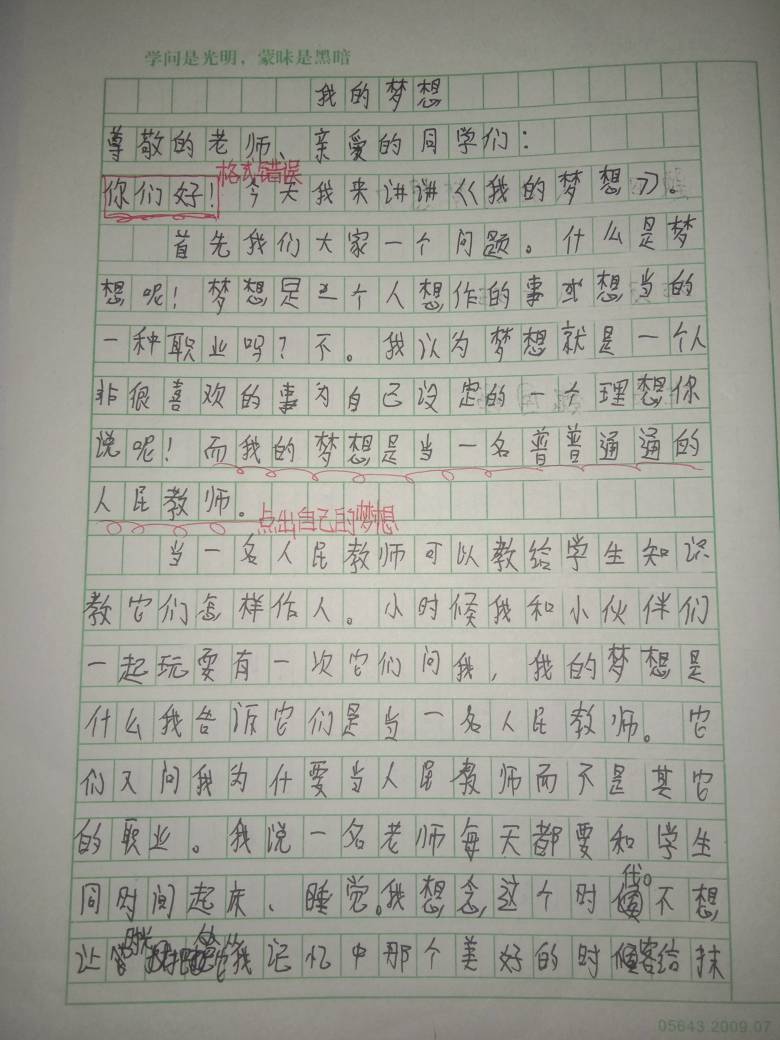 学问是光明，蒙昧是黑暗
我的梦想
尊敬的老师、亲爱的同学们：
格式错误
你们好！今天我来讲讲《我的梦想》。
首先我们大家一个问题。什么是梦
想呢！梦想是一个人想作的事或想当的
一种职业吗？不。我认为梦想就是一个人
非很喜欢的事为自己设定的一个理想你
说呢！而我的梦想是当一名普普通通的
人民教师。
点出自己的梦想
当一名人民教师可以教给学生知识
教它们怎样作人。小时候我和小伙伴们
一起玩耍有一次它们问我，我的梦想是
什么我告诉它们是当一名人民教师。它
们又问我为什要当人民教师而不是其它
的职业。我说一名老师每天都要和学生
同时间起床、睡觉。我想念这个时代。不想
让时光把我记忆中那个美好的时候给抹
05643.2009.07